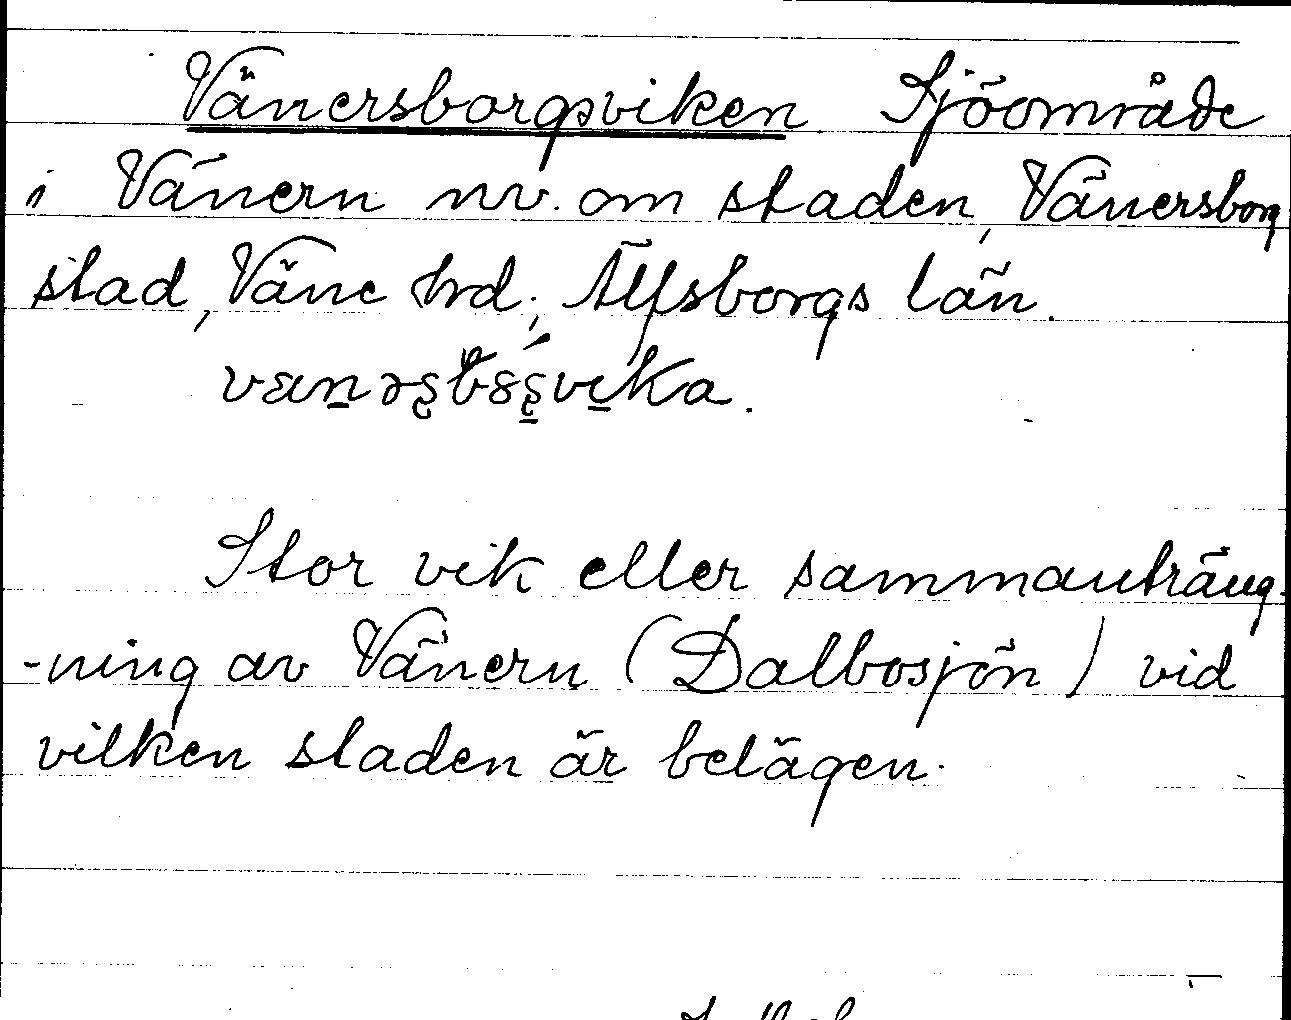 Vänersborgsviken Sjöområde
i Vänern nv. om staden, Vänersborg
stad, Väne hrd; Älfsborgs län.
Stor vik eller sammanträng-
-ning av Vänern (Dalbosjön) vid
vilken staden är belägen.